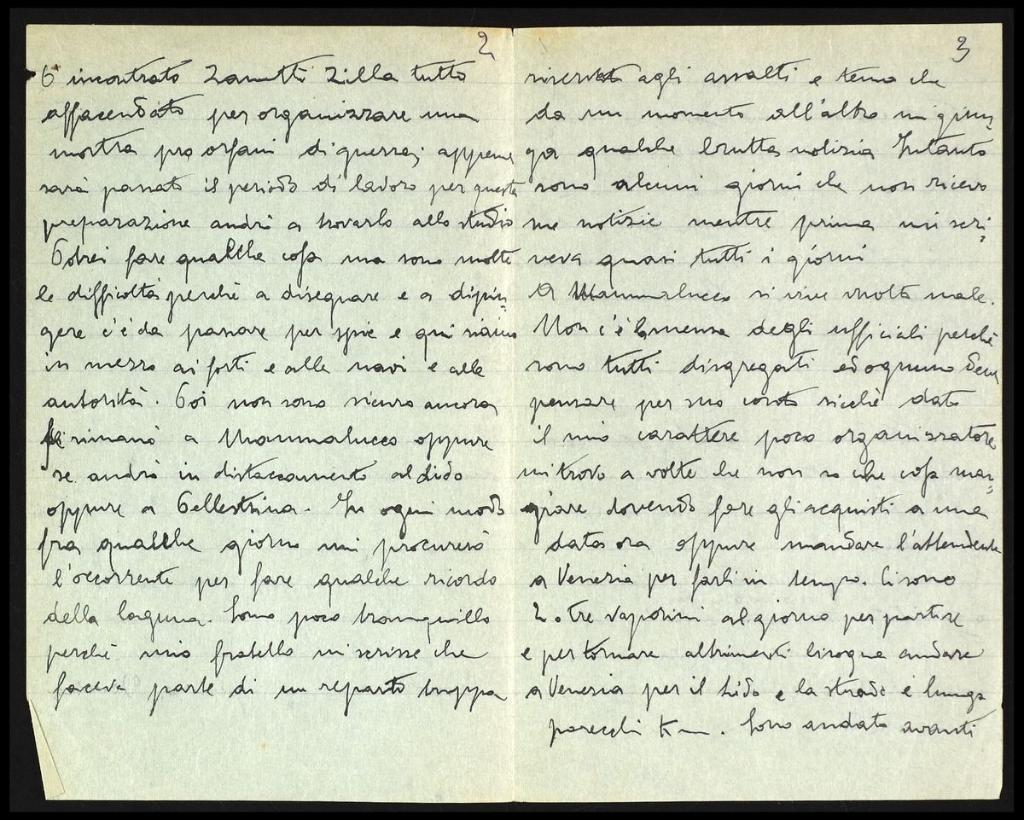 2
Ò incontrato Zanetti Zilla tutto
affacendato per organizzare una
mostra pro orfani di guerra; appena
sarà passato il periodo di lavoro per questa
preparazione andrò a trovarlo allo studio
Potrei fare qualche cosa ma sono molte
le difficoltà perchè a disegnare e a dipin
gere c'è da passare per spie e qui siamo
in mezzo ai forti e alle navi e alle
autorità. Poi non sono sicuro ancora
se rimarrò a Mammalucco oppure
se andrò in distaccamento al Lido
oppure a Pellestrina. In ogni modo
fra qualche giorno mi procurerò
l'occorrente per fare qualche ricordo
della laguna. Sono poco tranquillo
perchè mio fratello mi scrisse che
faceva parte di un reparto truppa
3
riservato agli assalti e temo che
da un momento all'altro mi giun=
ga qualche brutta notizia Intanto
sono alcuni giorni che non ricevo
sue notizie mentre prima mi scri=
veva quasi tutti i giorni
A Mammalucco si vive molto male.
Non c'è la mensa degli ufficiali perchè
sono tutti disgregati ed ognuno deve
pensare per suo conto sicchè dato
il mio carattere poco organizzatore
mi trovo a volte che non so che cosa man=
giare dovendo fare gli acquisti a una
data ora oppure mandare l'attendente
a Venezia per farli in tempo. Ci sono
2 o tre vaporini al giorno per partire
e per tornare altrimenti bisogna andare
a Venezia per il Lido e la strada è lunga
parecchi Km. Sono andato avanti